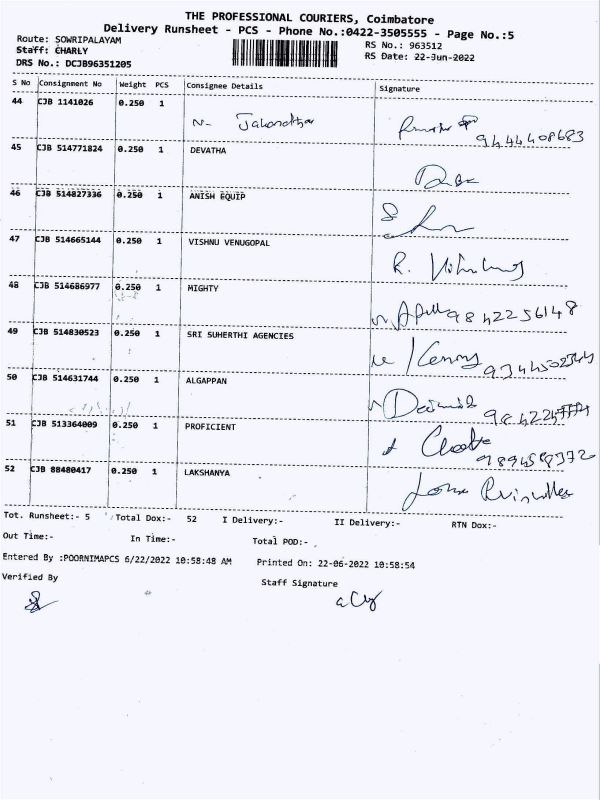 THE PROFESSIONAL COURIERS, Coimbatore
Delivery Runsheet - PCS - Phone No.:0422-3505555 - Page No.:5
Route: SOWRIPALAYAM
RS No.: 963512
Staff: CHARLY
RS Date: 22-Jun-2022
DRS No.: DCJB96351205
S No Consignment No Weight PCS Consignee Details Signature
44 CJB 1141026 0.250 1
9444408683
45 CJB 514771824 0.250 1 DEVATHA
46 CJB 514827336 0.250 1 ANISH EQUIP
47 CJB 514665144 0.250 1 VISHNU VENUGOPAL
R.
48 CJB 514686977 0.250 1 MIGHTY
9842256148
49 CJB 514830523 0.250 1 SRI SUHERTHI AGENCIES
50 CJB 514631744 0.250 1 ALGAPPAN
51 CJB 513364009 0.250 1 PROFICIENT
52 CJB 88480417 0.250 1 LAKSHANYA
Tot. Runsheet:- 5 Total Dox:- 52 I Delivery:- II Delivery:- RTN Dox:-
Out Time:- In Time:- Total POD:-
Entered By :POORNIMAPCS 6/22/2022 10:58:48 AM Printed On: 22-06-2022 10:58:54
Verified By Staff Signature